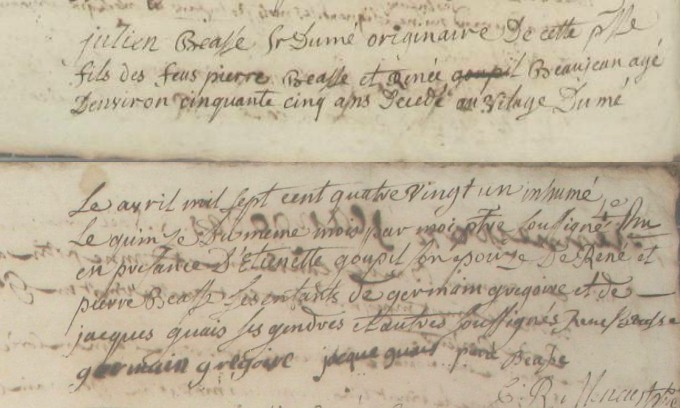 julien Beasse Sr Dumé originaire De cette psse
fils des feus pierre Beasse et Renée goupil Beaujean agé
Denviron cinquante cinq ans Decedé au Vilage Dumé
Le avril mil sept cent quatre Vingt un inhumé
Le quinze Du meme mois par moi ptre soussigné
en presance D'Etienette goupil son epouse De René et
pierre Beasse ses enfants de germain gregoire et de
jacques quais ses gendres et autres soussignés Rene Beasse
germain gregoire jacque quais Beasse